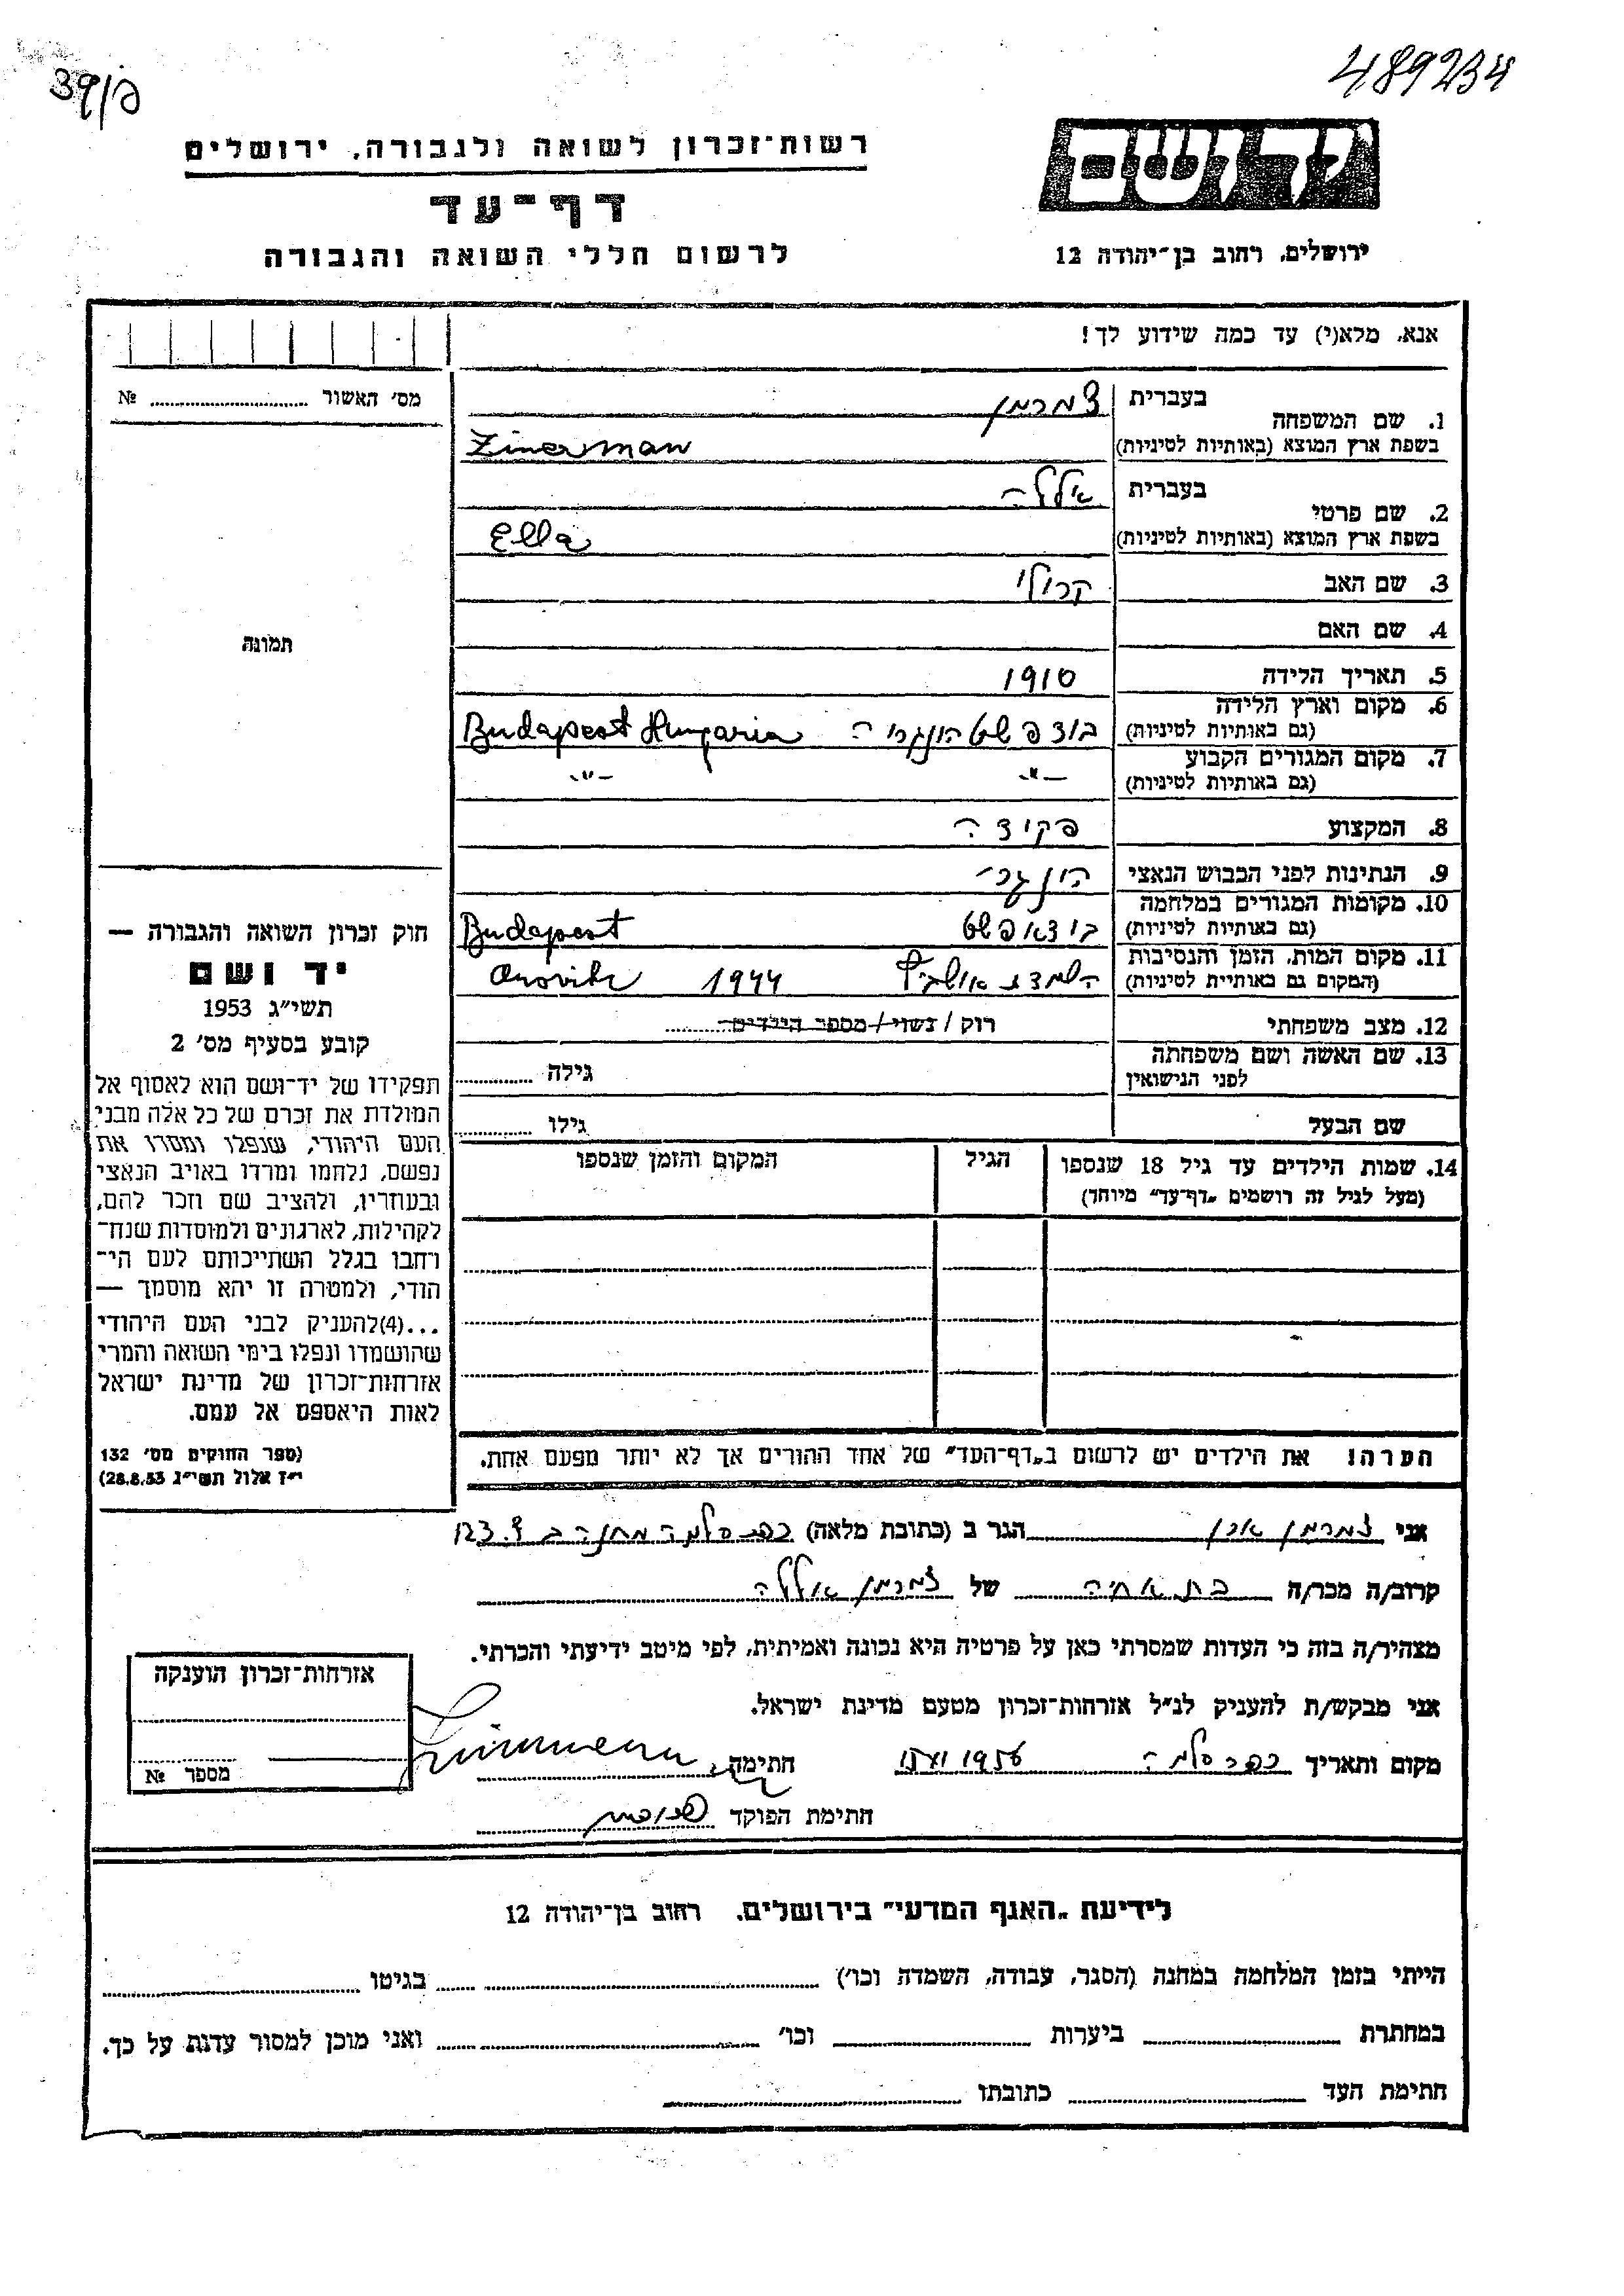 489234
רשות־זכרון לשואה ולגבורה, ירושלים
דף־עד
לרשום חללי השואה והגבורה
יד ושם
ירושלים, רחוב בן־יהודה 12
אנא, מלא(י) עד כמה שידוע לך!
מס' האשור № ........
1. שם המשפחה בעברית צמרמן
בשפת ארץ המוצא (באותיות לטיניות) Zimerman
2. שם פרטי בעברית אללה
בשפת ארץ המוצא (באותיות לטיניות) Ella
3. שם האב קרולי
4. שם האם
5. תאריך הלידה 1910
6. מקום וארץ הלידה
(גם באותיות לטיניות) בודפשט הונגריה Budapest Hungaria
7. מקום המגורים הקבוע
(גם באותיות לטיניות) –"– –"–
8. המקצוע פקידה
9. הנתינות לפני הכבוש הנאצי הונגרי
10. מקומות המגורים במלחמה
(גם באותיות לטיניות) בודאפשט Budapest
11. מקום המות, הזמן והנסיבות
(המקום גם באותיות לטיניות) 1944
12. מצב משפחתי רוק / נשוי / מספר הילדים ........
13. שם האשה ושם משפחתה
לפני הנישואין גילה ........
שם הבעל גילו ........
14. שמות הילדים עד גיל 18 שנספו
(מעל לגיל זה רושמים „דף־עד" מיוחד)
הגיל
המקום והזמן שנספו
הערה! את הילדים יש לרשום ב„דף־העד" של אחד ההורים אך לא יותר מפעם אחת.
תמונה
חוק זכרון השואה והגבורה —
יד ושם
תשי"ג 1953
קובע בסעיף מס' 2
תפקידו של יד־ושם הוא לאסוף אל
המולדת את זכרם של כל אלה מבני
העם היהודי, שנפלו ומסרו את
נפשם, נלחמו ומרדו באויב הנאצי
ובעוזריו, ולהציב שם וזכר להם,
לקהילות, לארגונים ולמוסדות שנח־
רחבו בגלל השתייכותם לעם הי־
הודי, ולמטרה זו יהא מוסמך —
...(4)להעניק לבני העם היהודי
שהושמדו ונפלו בימי השואה והמרי
אזרחות־זכרון של מדינת ישראל
לאות היאספם אל עמם.
(ספר החוקים מס' 132
י"ז אלול תשי"ג 28.8.53)
אני צמרמן הגר ב (כתובת מלאה) כפר סלמה מחנה ב 123
קרוב/ה מכר/ה בת אחיה של צמרמן אללה
מצהיר/ה בזה כי העדות שמסרתי כאן על פרטיה היא נכונה ואמיתית, לפי מיטב ידיעתי והכרתי.
אני מבקש/ת להעניק לנ"ל אזרחות־זכרון מטעם מדינת ישראל.
מקום ותאריך כפר סלמה 1956 חתימה
חתימת הפוקד
אזרחות־זכרון הוענקה
מספר №
לידיעת „האגף המדעי" בירושלים, רחוב בן־יהודה 12
הייתי בזמן המלחמה במחנה (הסגר, עבודה, השמדה וכו') ........ בגיטו ........
במחתרת ........ ביערות ........ וכו' ........ ואני מוכן למסור עדות על כך.
חתימת העד ........ כתובתו ........